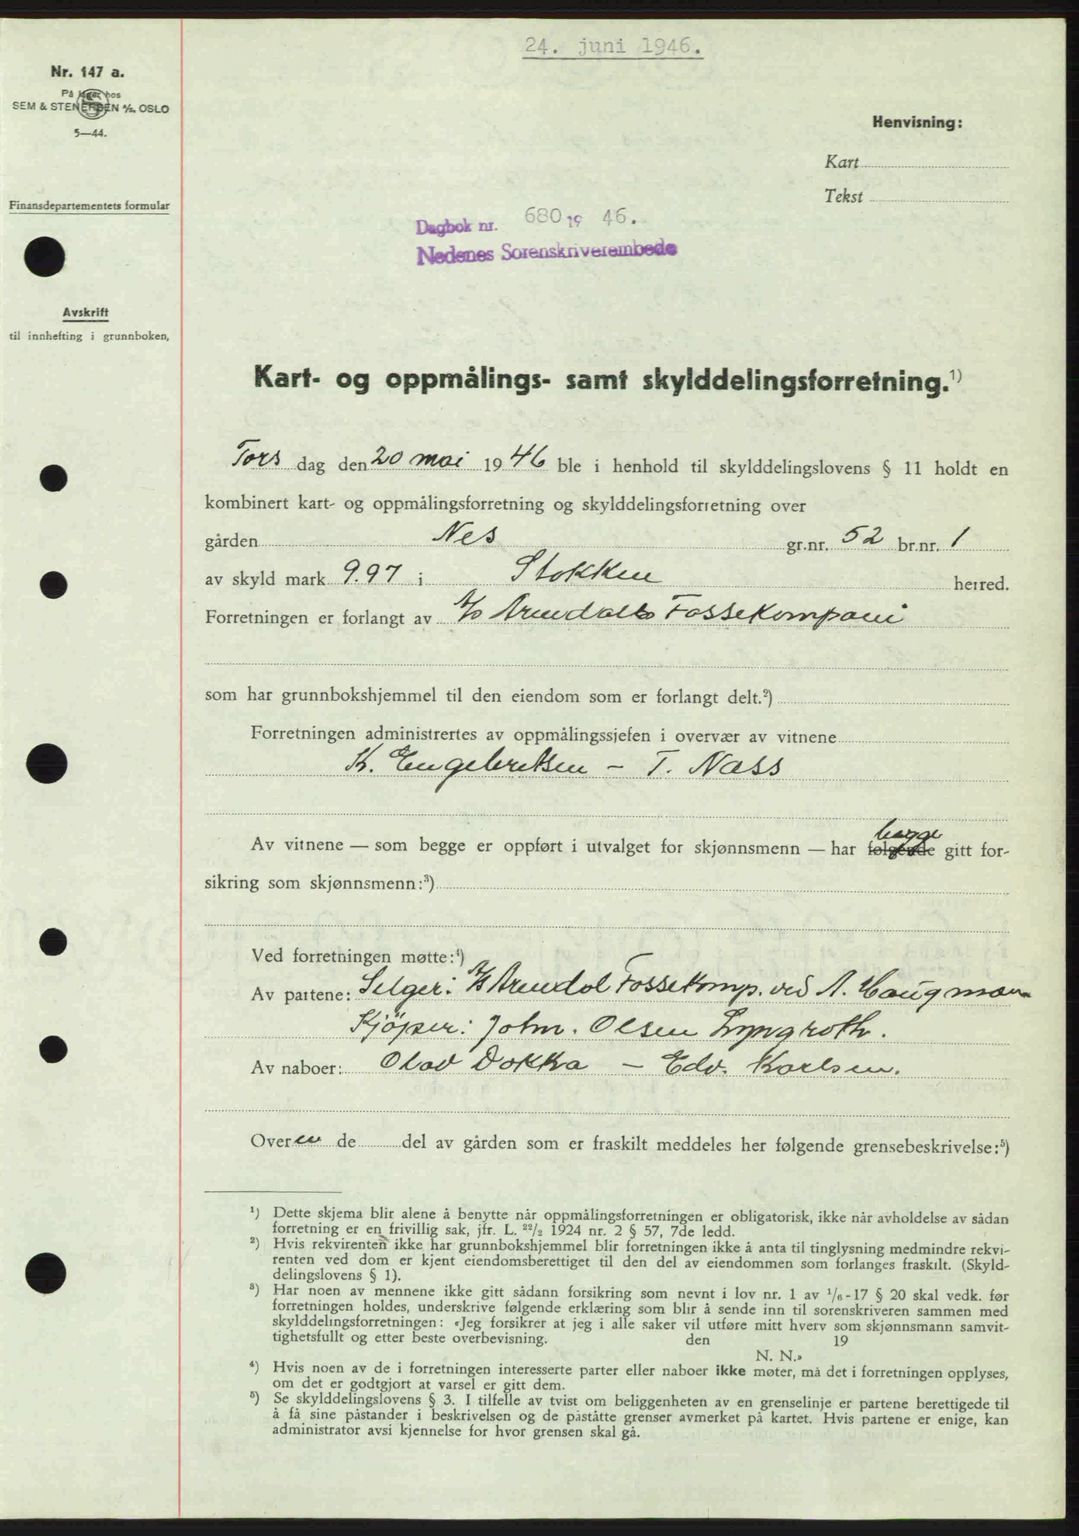 24. juni 1946.
Nr. 147 a.
På lager hos
SEM & STENERSEN A/S. OSLO
5—44.
Henvisning:
Kart
Tekst
Finansdepartementets formular
Dagbok nr. 680 19 46.
Nedenes Sorenskriverembede
Avskrift
til innhefting i grunnboken,
Kart- og oppmålings- samt skylddelingsforretning.¹)
Tors dag den 20 mai 19 46 ble i henhold til skylddelingslovens § 11 holdt en
kombinert kart- og oppmålingsforretning og skylddelingsforretning over
gården Nes gr.nr. 52 br.nr. 1
av skyld mark 9.97 i Stokken herred.
Forretningen er forlangt av A/S Arendals Fossekompani
som har grunnbokshjemmel til den eiendom som er forlangt delt.²)
Forretningen administrertes av oppmålingssjefen i overvær av vitnene
K. Engebretsen – T. Næss
begge
Av vitnene — som begge er oppført i utvalget for skjønnsmenn — har følgende gitt for-
sikring som skjønnsmenn:³)
Ved forretningen møtte:⁴)
Av partene: Selger: A/S Arendal Fossekomp. ved A. Haugman
Kjöper: Joh. Olsen Lyngroth.
Av naboer: Olav Dokka – Edv. Karlsen.
Over en de del av gården som er fraskilt meddeles her følgende grensebeskrivelse:⁵)
¹) Dette skjema blir alene å benytte når oppmålingsforretningen er obligatorisk, ikke når avholdelse av sådan
forretning er en frivillig sak, jfr. L. 22/2 1924 nr. 2 § 57, 7de ledd.
²) Hvis rekvirenten ikke har grunnbokshjemmel blir forretningen ikke å anta til tinglysning medmindre rekvi-
renten ved dom er kjent eiendomsberettiget til den del av eiendommen som forlanges fraskilt. (Skyld-
delingslovens § 1).
³) Har noen av mennene ikke gitt sådann forsikring som nevnt i lov nr. 1 av 1/6-17 § 20 skal vedk. før
forretningen holdes, underskrive følgende erklæring som blir å sende inn til sorenskriveren sammen med
skylddelingsforretningen: «Jeg forsikrer at jeg i alle saker vil utføre mitt hverv som skjønnsmann samvit-
tighetsfullt og etter beste overbevisning. den 19
N. N.»
⁴) Hvis noen av de i forretningen interesserte parter eller naboer ikke møter, må det i forretningen opplyses,
om det er godtgjort at varsel er gitt dem.
⁵) Se skylddelingslovens § 3. I tilfelle av tvist om beliggenheten av en grenselinje er partene berettigede til
å få sine påstander i beskrivelsen og de påståtte grenser avmerket på kartet. Hvis partene er enige, kan
administrator avsi kjennelse for hvor grensen skal gå.